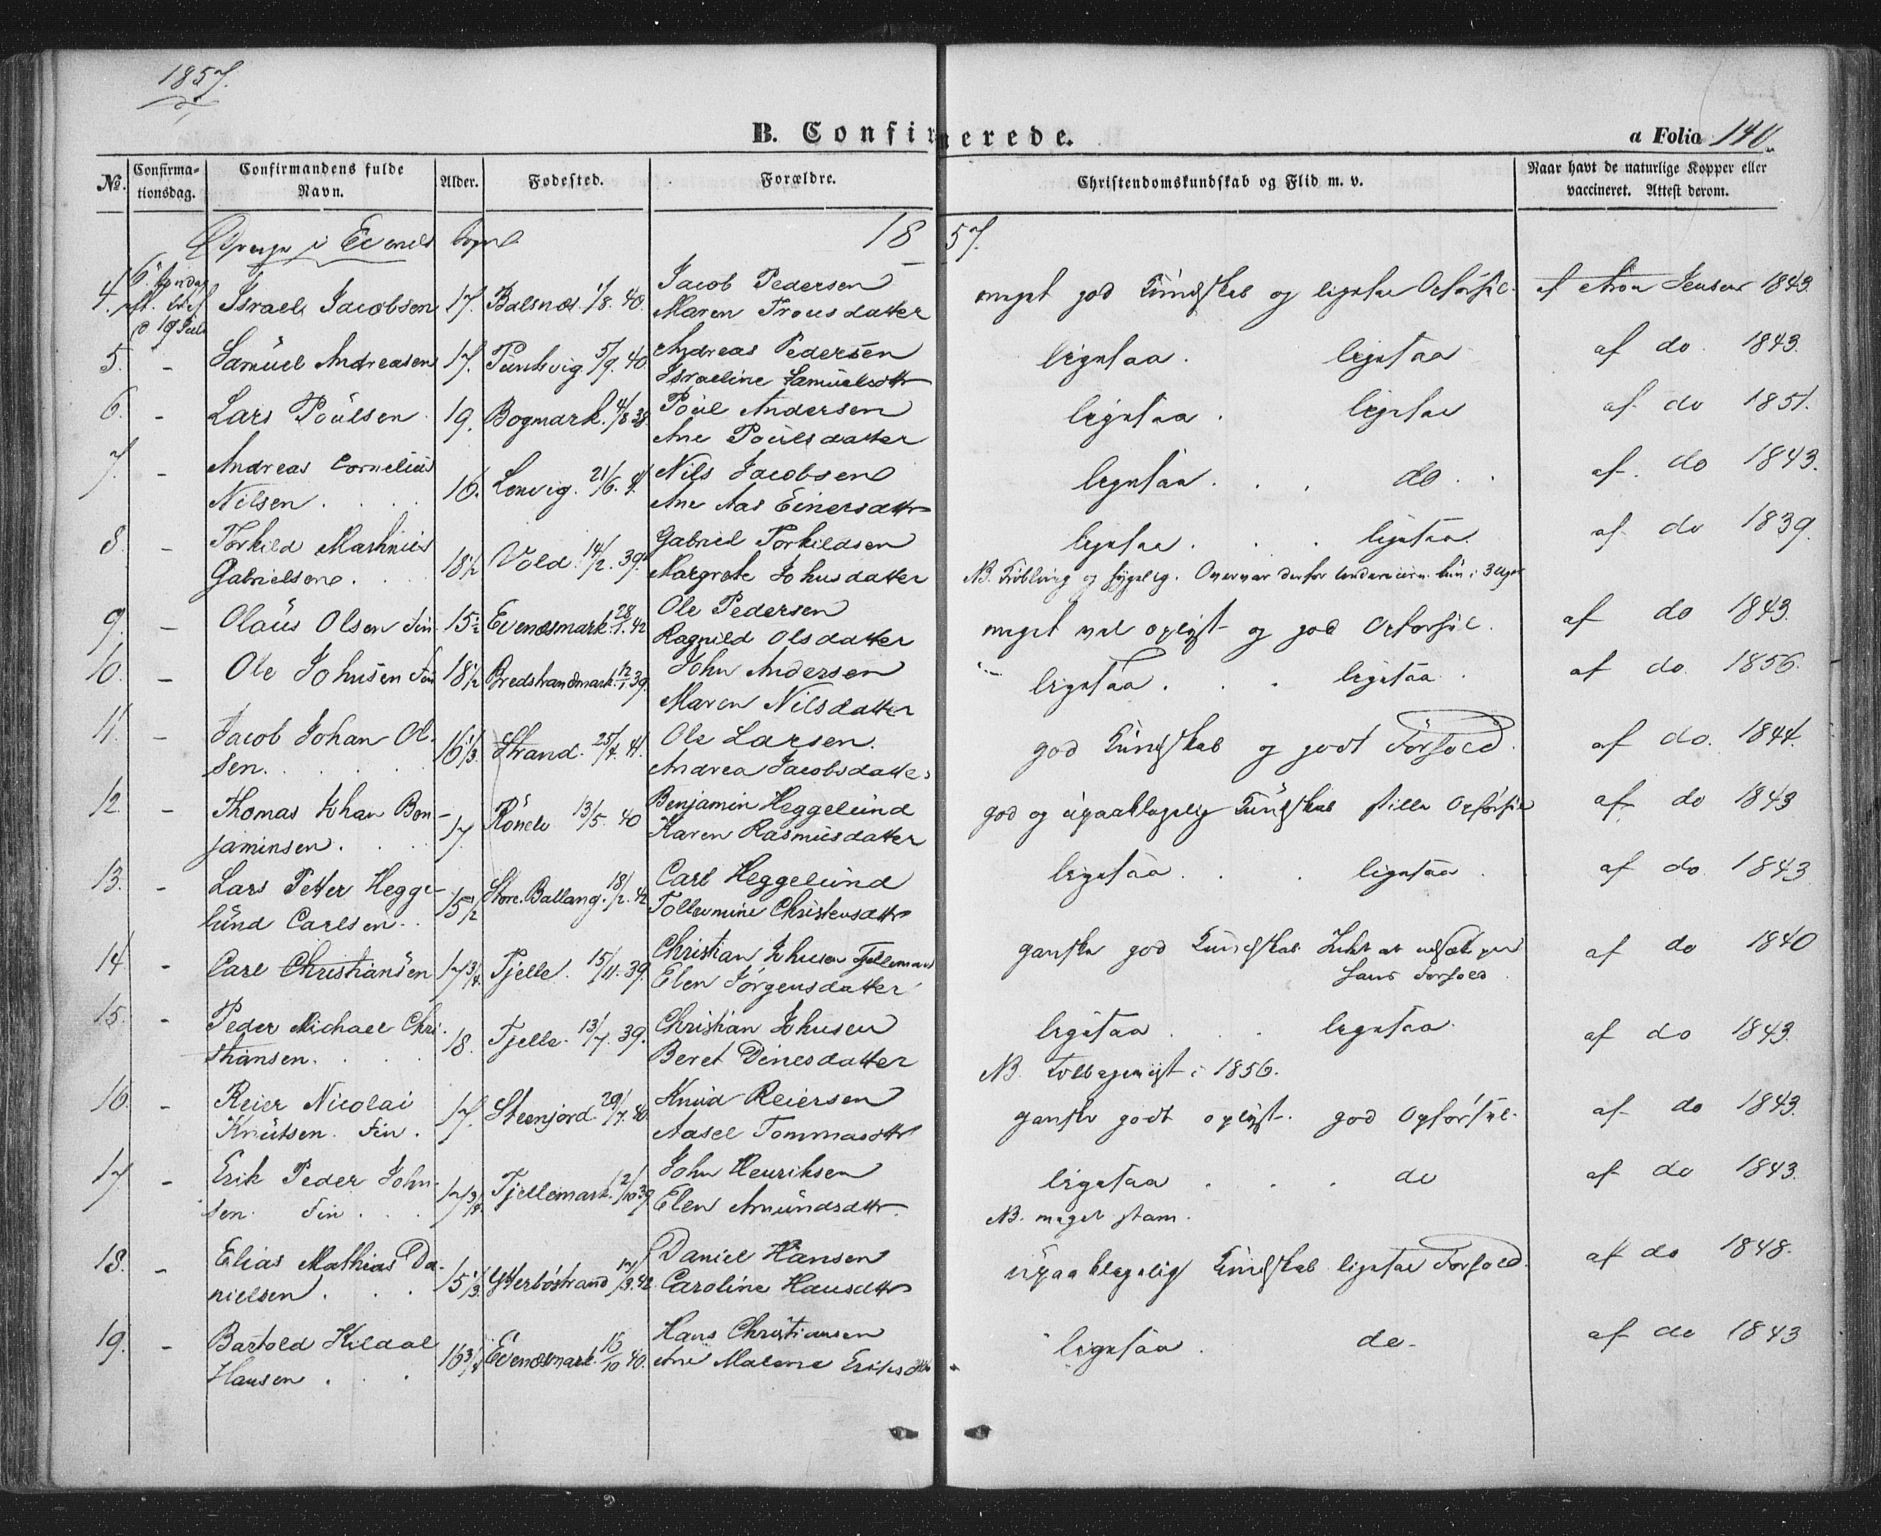 1857.
B. Confirmerede.
a Folio 140.
No. Confirmationsdag. Confirmandens fulde Navn. Alder. Fødested. Forældre. Christendomskundskab og Flid m. v. Naar havt de naturlige Kopper eller vaccineret. Attest derom.
Drenge i Evenes Sogn 1857.
4. Israel Jacobsen 17. Balsnes 1/8. 40. Jacob Pedersen meget god Kundskab og ligesaa Opførsel. af Aron Jensen 1843.
Maren Trousdatter
5. - Samuel Andreasen 17. 5/9. 40. Andreas Pedersen ligesaa. ligesaa af do. 1843.
Israeline Samuelsdttr
6. - Lars Poulsen. 19. Bogmark. 4/8 38. Poul Andersen ligesaa. ligesaa af do 1851.
Ane Poulsdatter
7. - Andreas Cornelius Nils Jacobsen
Nilsen. 16. Lenvig. 21/6. 41. Ane Aas Einersdttr ligesaa. do. af. do 1843.
8. - Torkild Mathias Gabriel Torkildsen ligesaa. ligesaa. af do 1839.
Gabrielsen. 18 1/2 Vold. 14/2. 39. Margrete Johnsdatter
9. - Olaüs Olsen Fin 15 1/2 Evenesmark. 28/1. 42 Ole Pedersen meget vel oplyst og god Opførsel. af do 1843.
Ragnild Olsdatter
10. - Ole Johnsen Fin 18 1/2 Bredstrandmark. 12/1 39. John Andersen ligesaa. ligesaa. af do. 1856.
Maren Nilsdatter
11. - Jacob Johan Ol- Ole Larsen.
sen. 16 1/3 Strand. 25/4. 41. Andrea Jacobsdatter god Kundskab og godt Forhold. af do. 1844.
12. - Thomas Johan Ben- Benjamin Heggelund
jaminsen. 17 13/5. 40 Karen Rasmusdatter god og upaaklagelig Kundskab stille Opførsel af do 1843
13. - Lars Petter Hegge- Carl Heggelund ligesaa. ligesaa. af do. 1843
lund Carlsen. 15 1/2 Store Ballang. 18/2. 42 Christensdttr
14 - Carl Christiansen 17 3/4 Tjelle. 15/11. 39. Christian Johnsen Tjellemark ganske god Kundskab. Intet at udsætte paa hans Forhold. af do 1840
Elen Jörgensdatter
15. - Peder Michael Chri- Christian Johnsen ligesaa. ligesaa. af do 1843.
stiansen. 18. Tjelle. 13/7. 39. Beret Dinesdatter
NB. i 1856.
16. - Reier Nicolai Knud Reiersen
Knutsen. Fin. 17. Steenjord. 29/7. 40 Aasel Tommasdttr ganske godt oplyst. god Opførsel. af do 1843.
17 - Erik Peder John- John Henriksen
sen. Fin. 17 3/4 Tjellemark. 2/10 39 Elen Amundsdttr. ligesaa. do af do 1843.
NB. meget stam.
18. - Elias Mathias Da- Daniel Hansen
nielsen. 15 1/3. Ytterböstrand Caroline Hansdttr upaaklagelig Kundskab ligesaa Forhold. af do 1848.
19. - Bartold Kildal Hans Christiansen
Hansen. 16 3/4 Evenesmark. 15/10 40. Ane Malena Eriksdttr ligesaa. do. af do 1843